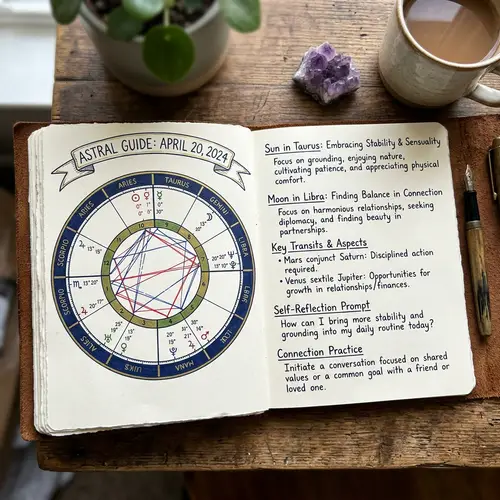 ASTRAL GUIDE: APRIL 20, 2024
ARIES
TAURUS
GEMINI
LIBRA
SCORPIO
SCORPIO
ARIES
Sun in Taurus: Embracing Stability & Sensuality
Focus on grounding, enjoying nature,
cultivating patience, and appreciating physical
comfort.
Moon in Libra: Finding Balance in Connection
Focus on harmonious relationships, seeking
diplomacy, and finding beauty in
partnerships.
Key Transits & Aspects
• Mars conjunct Saturn: Disciplined action
required.
• Venus sextile Jupiter: Opportunities for
growth in relationships/finances.
Self-Reflection Prompt
How can I bring more stability and
grounding into my daily routine today?
Connection Practice
Initiate a conversation focused on shared
values or a common goal with a friend or
loved one.